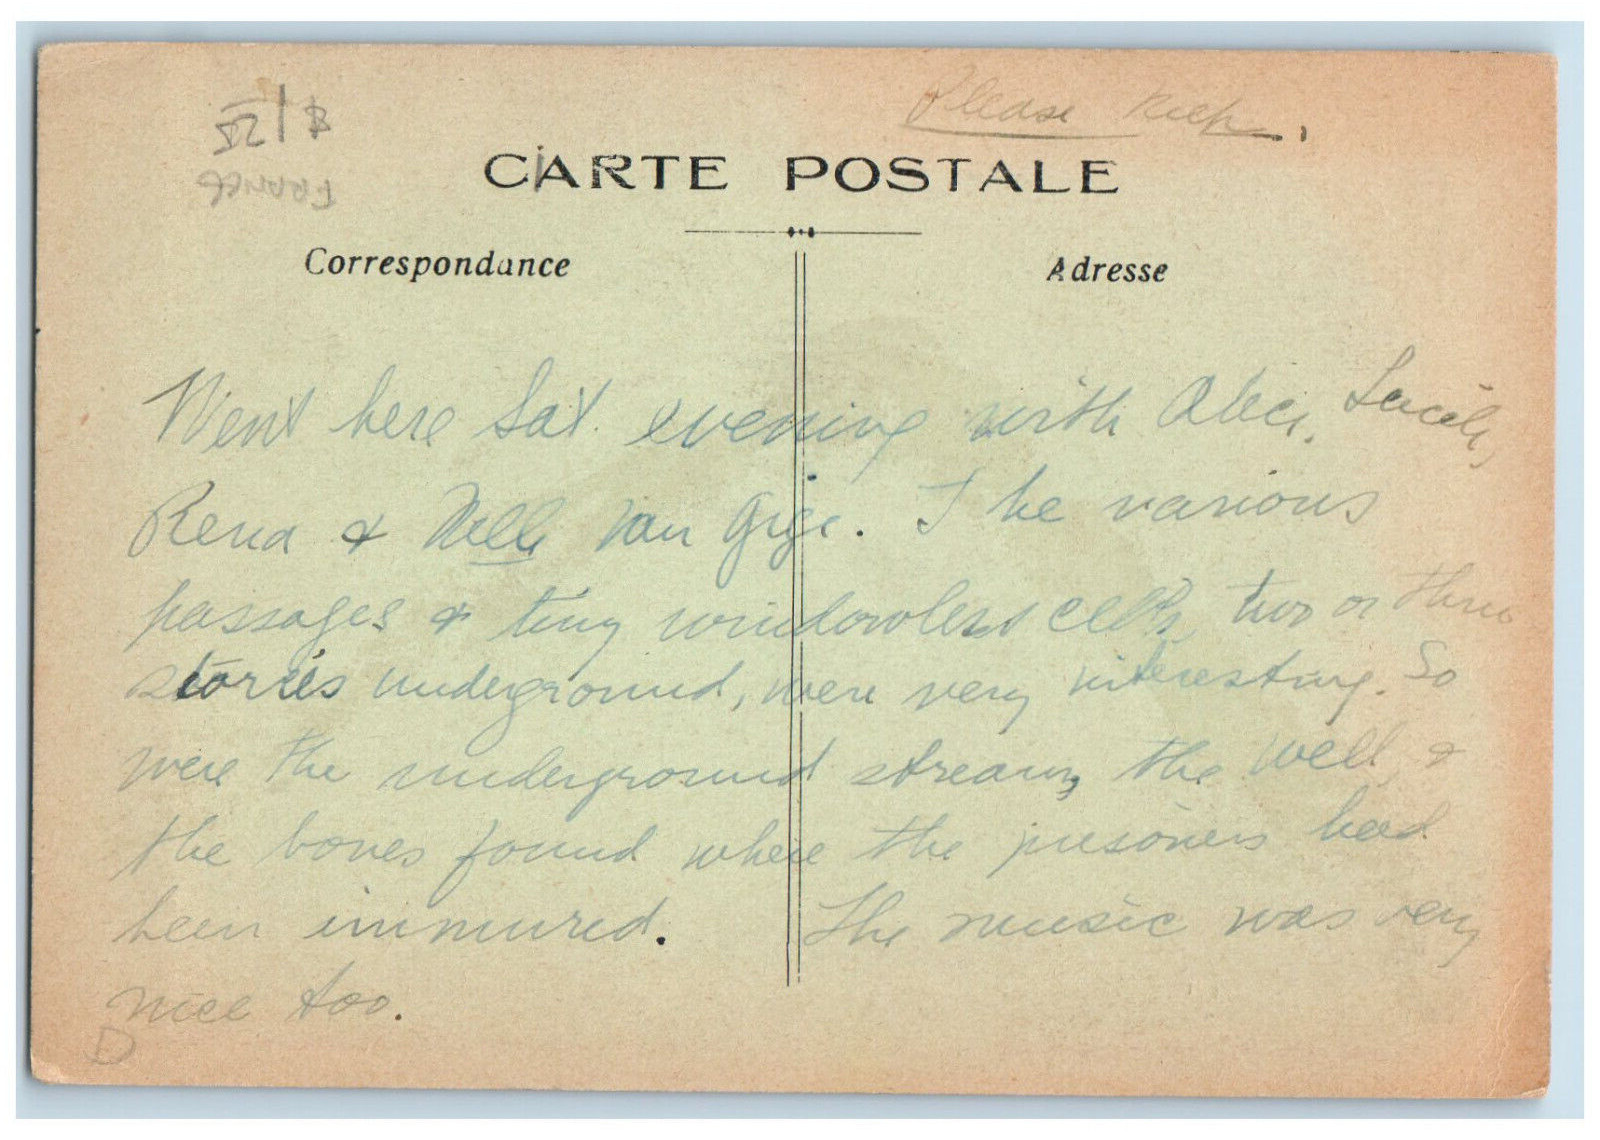 Please Keep.
CARTE POSTALE
Correspondance
Adresse
Went here Sat. evening with Alice, Lucile,
Rena & Nelle Van . The various
passages & tiny windowless cells, two or three
stories underground, were very interesting. So
were the underground stream, the well, &
the bones found where the prisoners had
been immured. The music was very
nice too.
D
$1
FRANCE